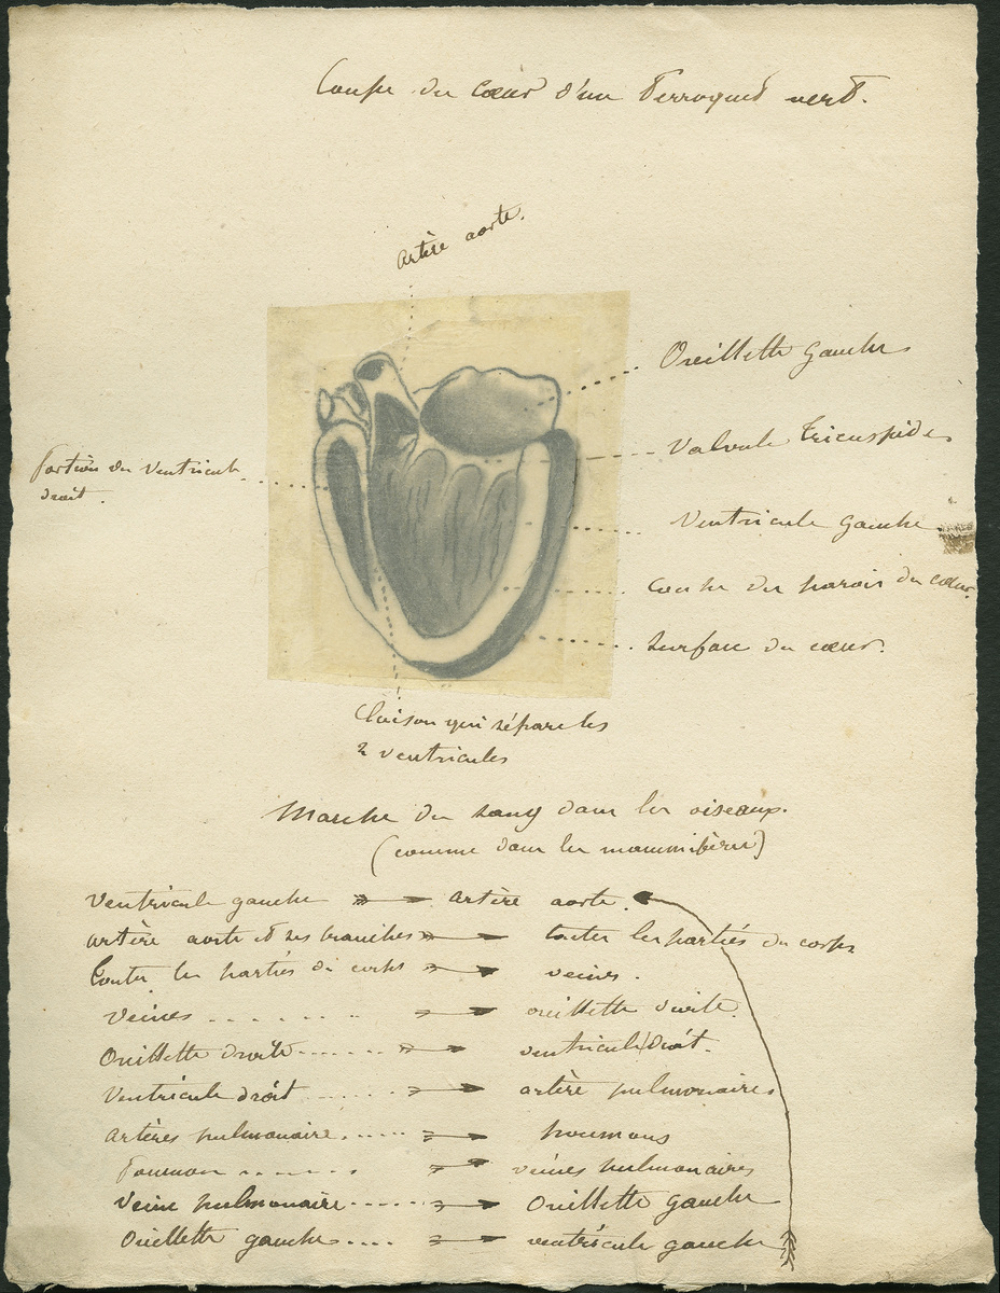 Coupe du Cœur d'un Perroquet vert.
artère aorte.
Oreillette gauche
Valvule tricuspide
Portion du ventricule
droit.
Ventricule gauche
coupe des parois du cœur.
Surface du cœur.
Cloison qui sépare les
2 ventricules
Marche du sang dans les oiseaux.
(comme dans les mammifères)
Ventricule gauche artère aorte.
artère aorte et ses branches toutes les parties du corps
toutes les parties du corps veines.
Veines oreillette droite.
Oreillette droite ventricule droit.
Ventricule droit artère pulmonaire.
artères pulmonaire poumons
Poumon veines pulmonaires
Veine pulmonaire Oreillette gauche
Oreillette gauche ventricule gauche